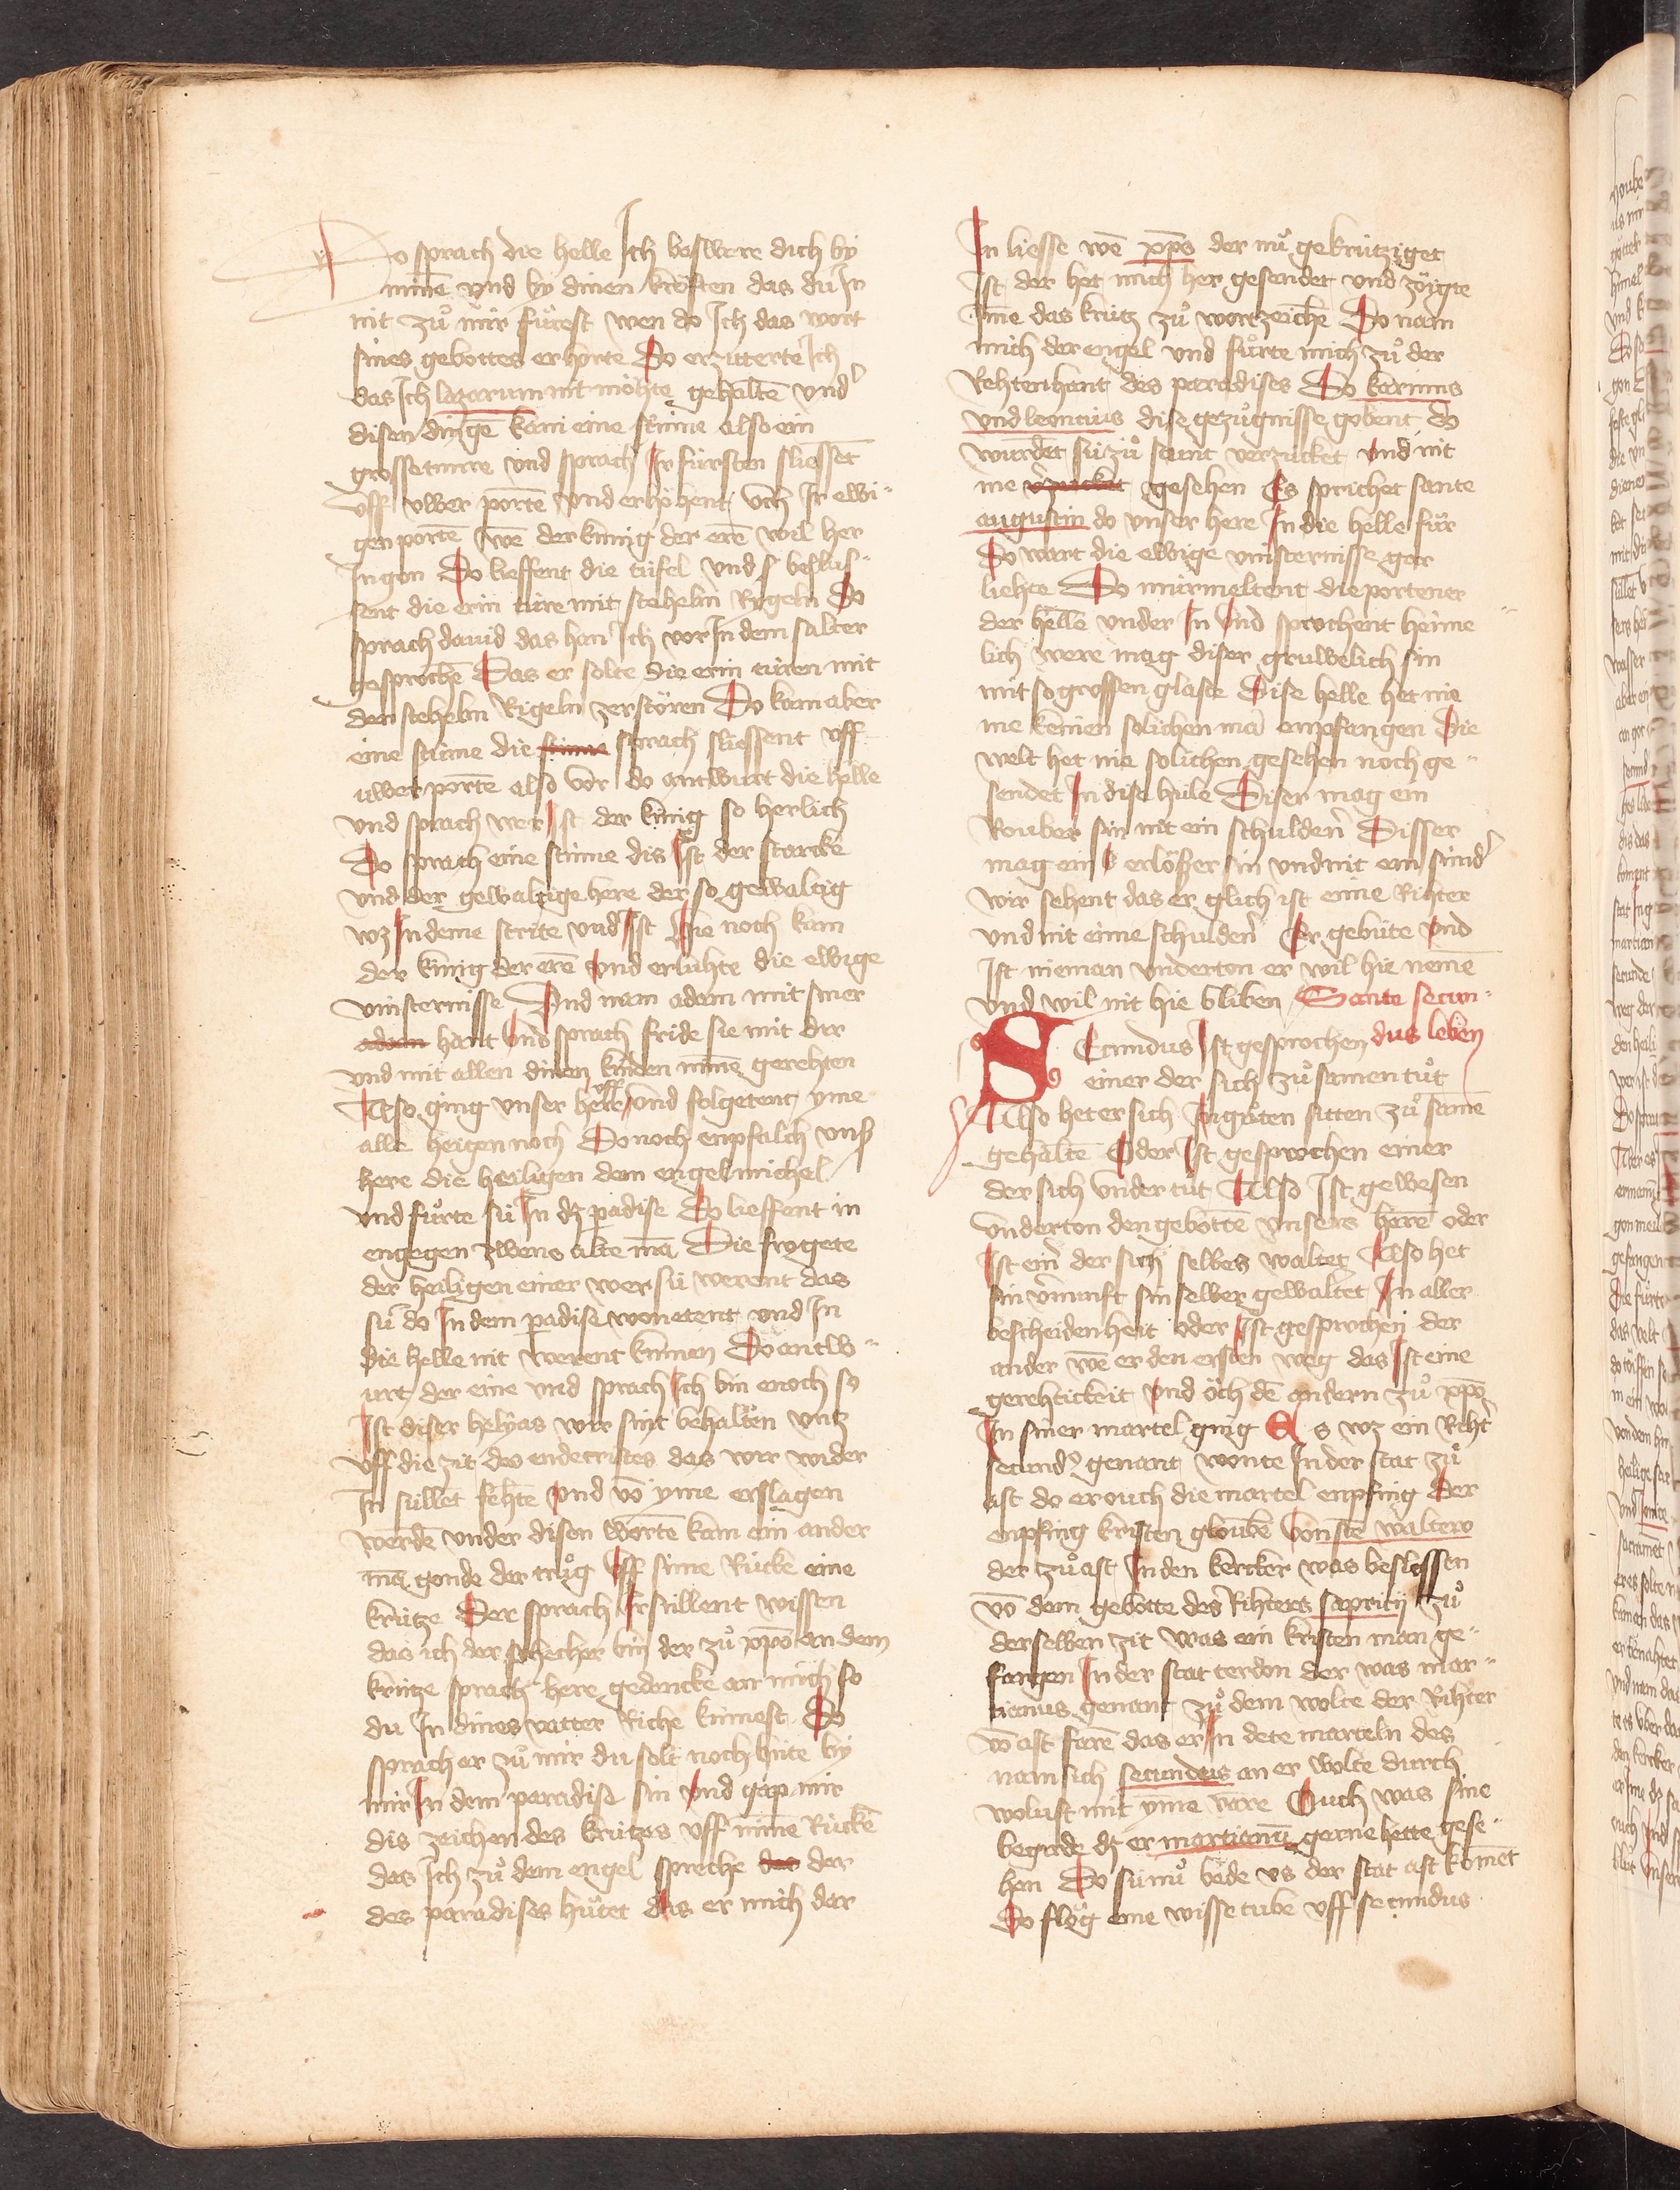 Do sprach die helle Ich beswere dich by
mine und by dinen kreften das du In
nit zuͦ mir fuͤrest wen do Ich das wort
sines gebottes erhorte Do erzitterte Ich
das Ich lazarum nit möhte gehaltē vnd
disen dingē kam eine stime also ein
grosse tunre vnd sprach Ir fürsten sliessēt
vff vwer portē vnd erhöhent vch Ir ewi-
gen portē wē der kúnig der erē wil her
In gon Do lieffent die túfel vnd beslus-
sent die erin túre mit stehelin Rigeln Do
sprach dauid das han Ich vor In dem salter
gesprochē Das er solte die erin túren mit
den stehelin Rigeln zerstören Do kam aber
eine stime die stime sprach sliessent vff
uwer portē also vor do antwurt die helle
vnd sprach wer Ist der kúnig so herlich
Do sprach eine stime dis Ist der starcke
vnd der gewaltige here der so gewaltig
wz In deme strite vnd Ist Hie noch kam
der kúnig der erē vnd erluhte die ewige
vinsternisse Vnd nam adam mit siner
adam hant vnd sprach fride sie mit dir
vnd mit allen dinen kinden mine gerehten
Also ging vnser here vff vnd folgetent yme
alle heigen noch Donoch enpfalch vnser
here die heiligen dem engel michel
vnd fuͤrte sú In dz padise Do lieffent in
engegen zwene alte mā Die frogete
der heiligen einer wer sú werent das
sú do In dem padise wonetent vnd In
die helle nit werent kumen Do antw-
urt der eine vnd sprach Ich bin enoch so
Ist diser helyas wir sint behalten vntz
vff die zit des endecristes das wir wider
In súllet fehtē vnd vō yme erslagen
werdē vnder disen wortē kam ein ander
mā gonde der truͦg vff sime Rúcke eine
krútze Der sprach Ir súllent wissen
das ich der schecher bin der zuͦ xpō an dem
krútze sprach here gedencke an mich so
du In dines vatter Riche kumest Do
sprach er zuͦ mir du solt noch húte by
mir In dem paradise sin vnd gap mir
dis zeichen des krútzes vff mine Rúckē
das Ich zuͦ dem engel spreche das der
des paradises huͤtet das er mich dar
In liesse wē xp̄s der nuͦ gekrútziget
Ist der het mich her gesendet vnd zoͤigte
Ime das krútz zuͦ wortzeichē Do nam
mich der engel vnd fuͤrte mich zuͦ der
Rehten hant des paradises Do karinus
vnd leoncius dise gezúgnisse gobent do
wurdēt sú zuͦ stunt verzucket vnd nit
me v̓zucket gesehen Es sprichet sante
augustin do vnser here In die helle fuͦr
Do wart die ewige vinsternisse gar
liehte Do murmeltent die portener
der helle vnder In Vnd sprochent heime
lich were mag diser gruwelich sin
mit so grossen glaste Dise helle het nie
me keinen solichen mā empfangen Die
welt het nie solichen gesehen noch ge-
sendet In dise húle Diser mag ein
Rouber sin nit ein schulden̓ Disser
mag ein erlößer sin vnd nit ein sind̓
wir sehent das er glich ist eime Rihter
vnd nit eime schulden̓ Er gebúte vnd
Ist nieman vnderton er wil hie nemē
vnd wil nit hie bliben Sante secun-
Ecundus Ist gesprochen dus leben
einer der sich zuͦ samen tuͦt
Also het er sich In guͦten sitten zuͦ samē
gehaltē Oder Ist gesprochen einer
der sich vnder tuͦt Also Ist gewesen
vnderton den gebottē vnsers herē oder
Ist ein̓ der sich selbes waltet Also het
sin v̓nunft sin selber gewaltet In aller
bescheidenheit oder Ist gesprochen der
ander wē er den ersten weg das Ist eine
gerehtickeit vnd ǒch dē andern zuͦ xpō
In siner martel ging Es wz ein Riht̓
secund9 genant wonte In der stat zuͦ
ast do er ouch die martel enpfing Der
enpfing kristen gloubē von stē waltero
der zuͦ ast In den kercker was beslossen
vō dem gebotte des Rihters sapricij zuͦ
der selben zit was ein kristen man ge-
fangen In der stat terdon der was mar-
tianus genant zuͦ dem wolte der Rihter
vō ast farē das er In dete marteln des
nam sich secundus an er wolte durch
wolust mit yme varē Ouch was sine
begirde dz er martianū gerne hette gese-
hen Do sú nuͦ bede vs der stat ast komēt
Do flǒg eine wisse tube vff secundus